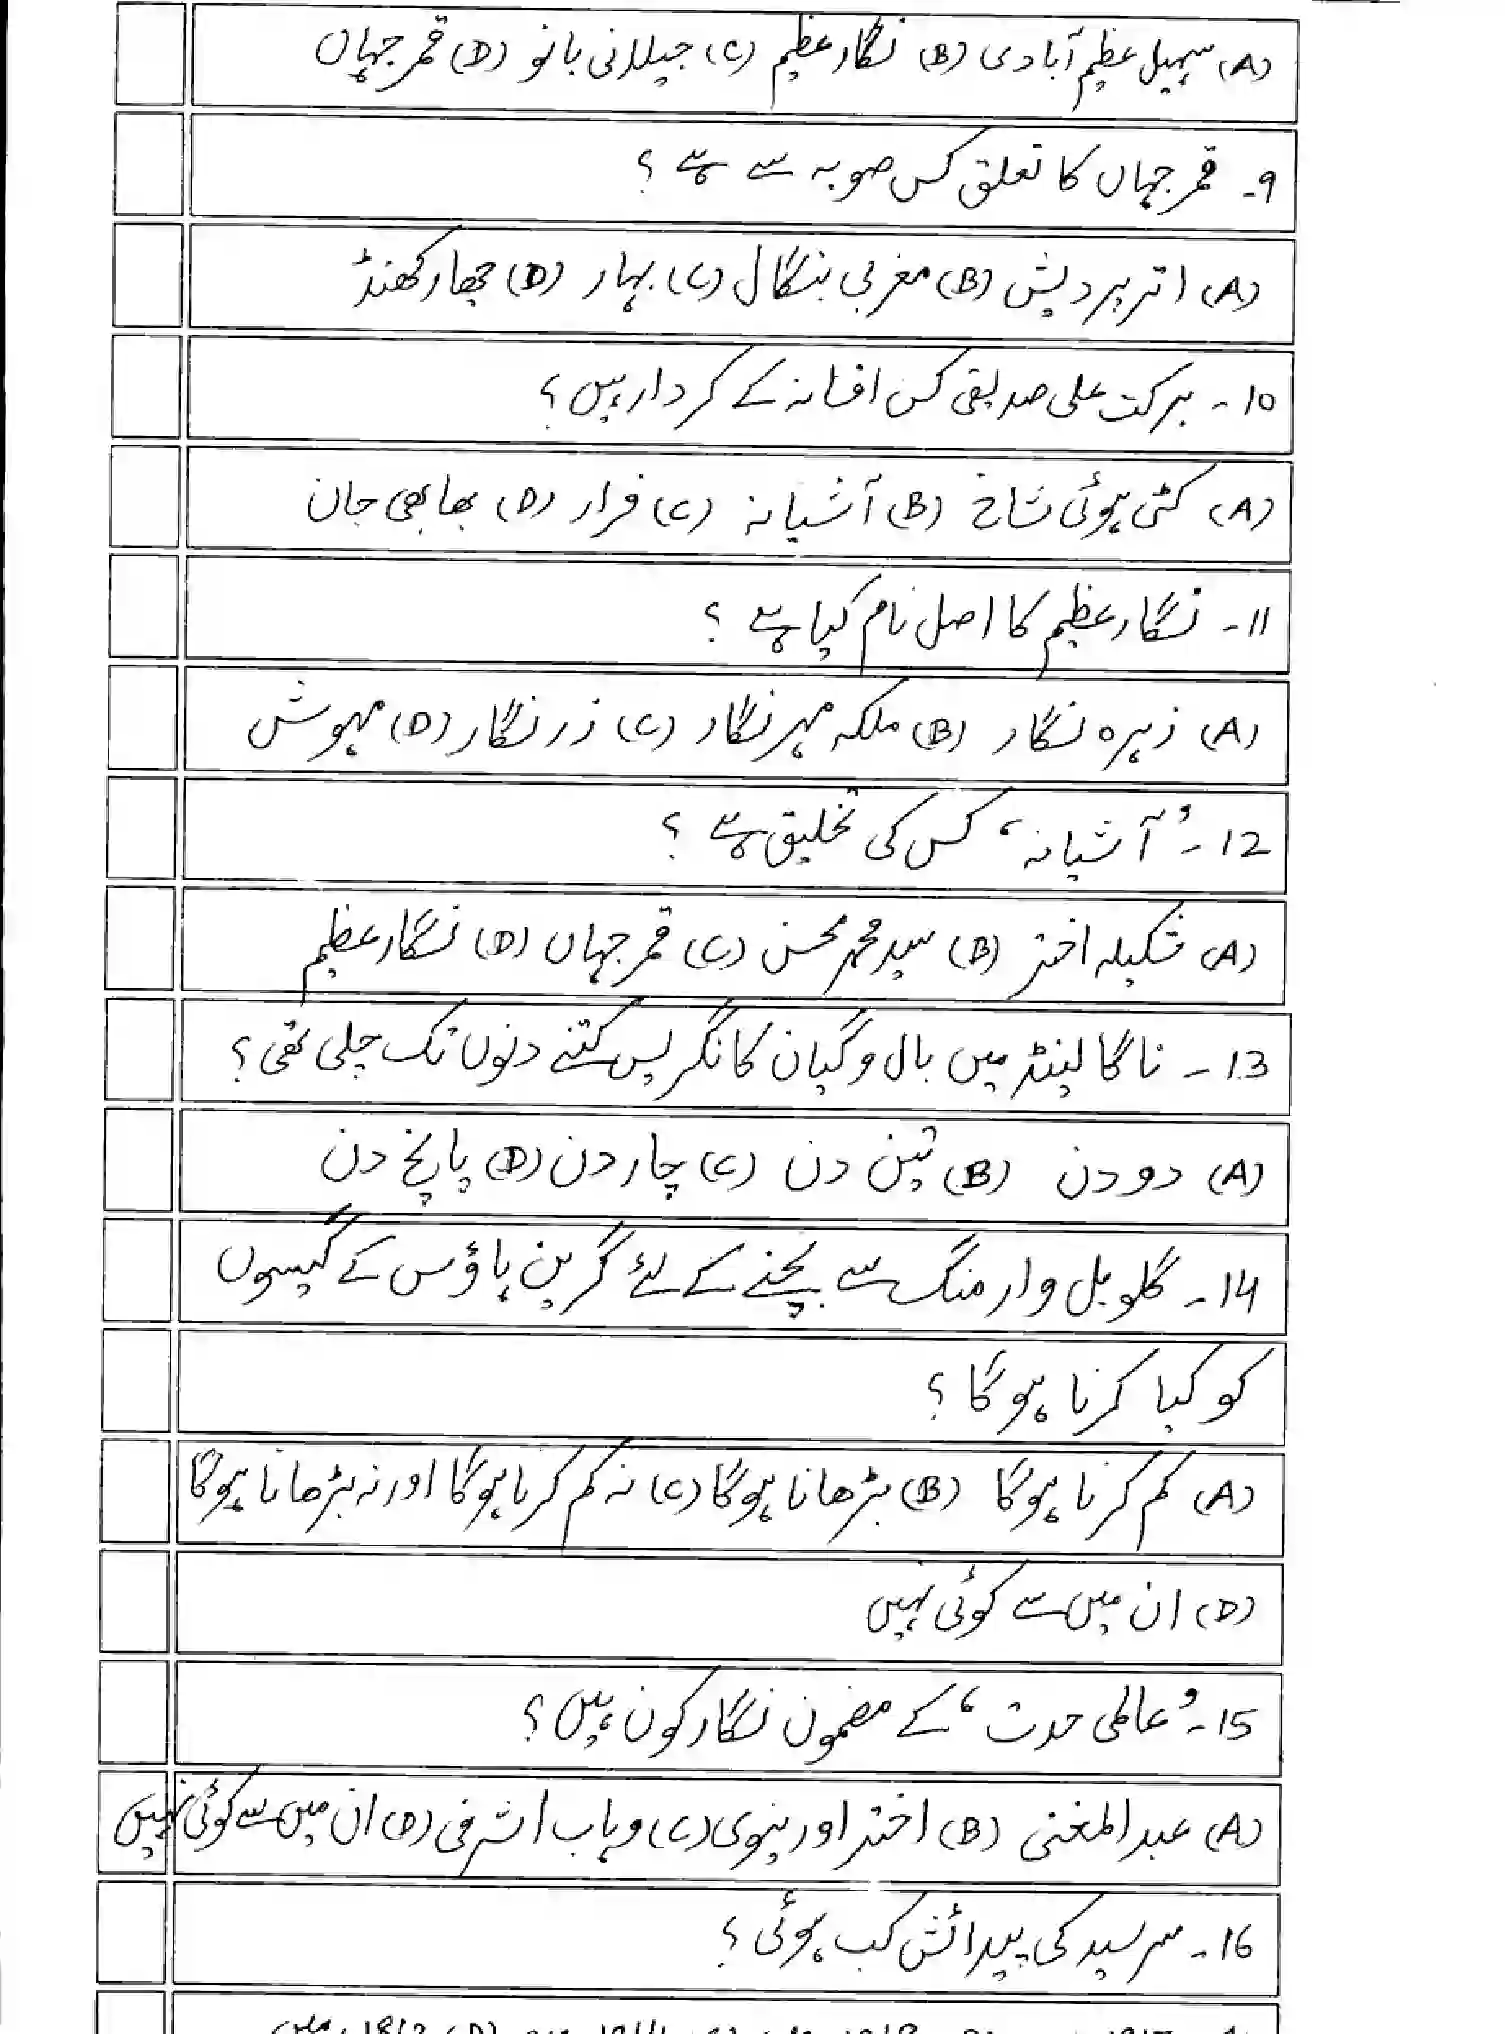 (A) سہیل عظیم آبادی (B) نگار عظیم (C) جیلانی بانو (D) قمر جہاں
9۔ قمر جہاں کا تعلق کس صوبہ سے ہے ؟
(A) اتر پردیش (B) مغربی بنگال (C) بہار (D) جھارکھنڈ
10۔ برکت علی صدیقی کس افسانہ کے کردار ہیں ؟
(A) کٹی ہوئی شاخ (B) آشیانہ (C) فرار (D) بھابھی جان
11۔ نگار عظیم کا اصل نام کیا ہے ؟
(A) زہرہ نگار (B) ملکہ مہر نگار (C) زر نگار (D) مہوش
12۔ ’آشیانہ‘ کس کی تخلیق ہے ؟
(A) شکیلہ اختر (B) سید محمد محسن (C) قمر جہاں (D) نگار عظیم
13۔ ناگالینڈ میں بال وگیان کانگریس کتنے دنوں تک چلی تھی ؟
(A) دو دن (B) تین دن (C) چار دن (D) پانچ دن
14۔ گلوبل وارمنگ سے بچنے کے لئے گرین ہاؤس کے گیسوں
کو کیا کرنا ہوگا ؟
(A) کم کرنا ہوگا (B) بڑھانا ہوگا (C) نہ کم کرنا ہوگا اور نہ بڑھانا ہوگا
(D) ان میں سے کوئی نہیں
15۔ ’عالمی حدت‘ کے مضمون نگار کون ہیں ؟
(A) عبدالمغنی (B) اختر اورینوی (C) وہاب اشرفی (D) ان میں سے کوئی نہیں
16۔ سرسید کی پیدائش کب ہوئی ؟